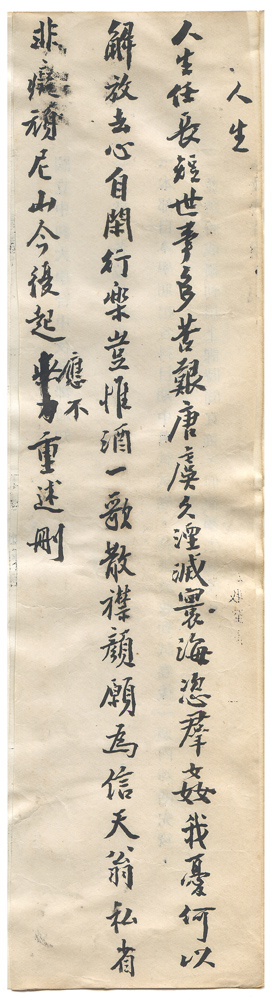 人生
人生任長短世事多苦艱唐虞久湮滅寰海恣羣姦我憂何以
解放去心自閑行樂豈惟酒一歌散襟顏願為信天翁私省
非癡頑尼山今復起應不重述刪